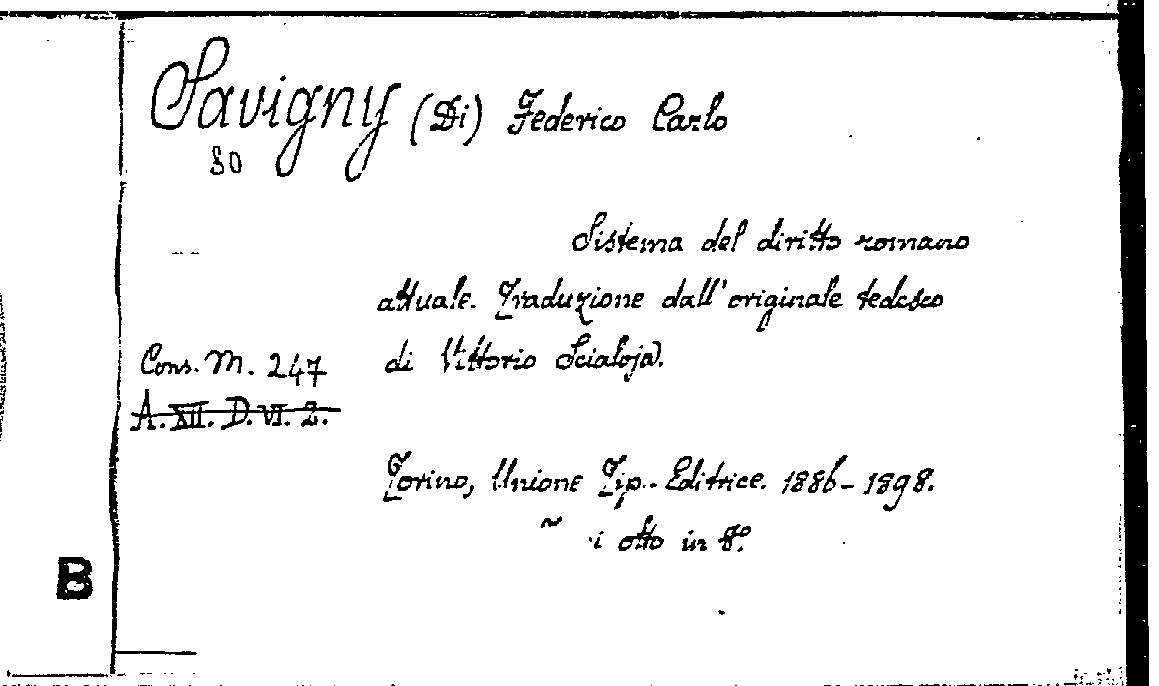 Savigny (Di) Federico Carlo
80
Sistema del diritto romano
attuale. Traduzione dall'originale tedesco
di Vittorio Scialoja.
Cons. M. 247
A. XII. D. VI. 2.
Torino, Unione Tip.-Editrice. 1886-1898.
i otto in 8º.
B